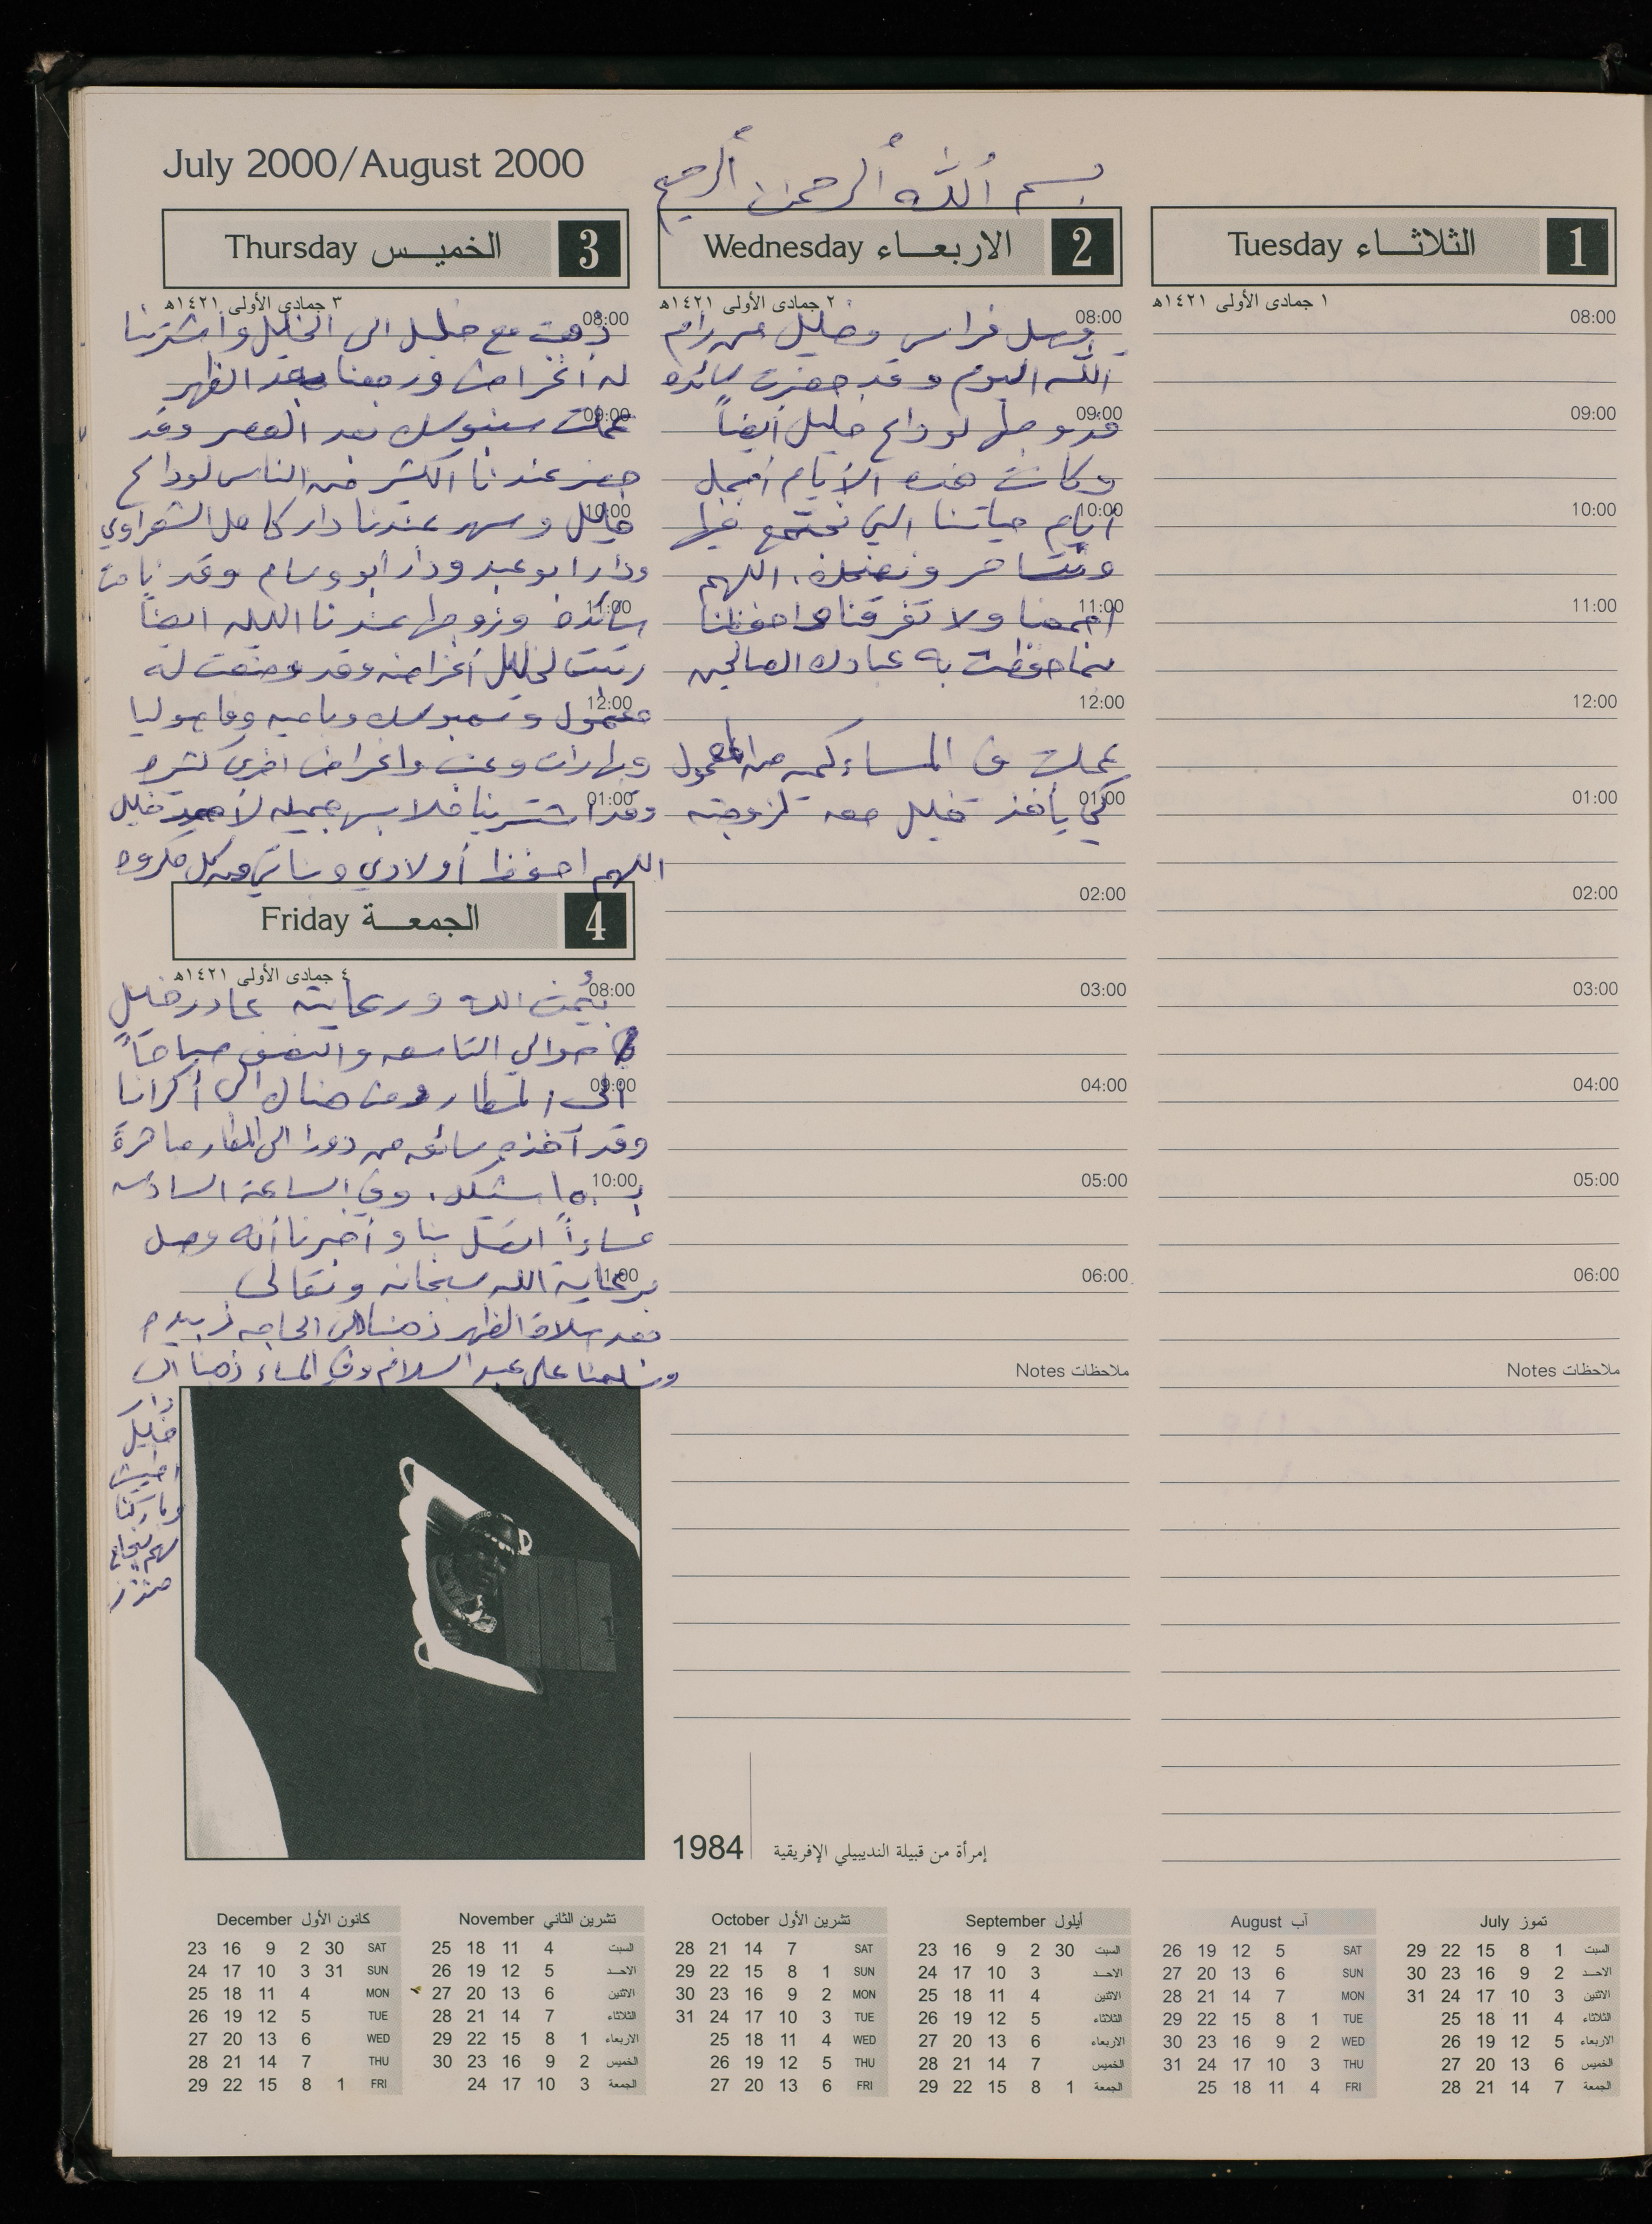 July 2000/August 2000
بسم الله الرحمن الرحيم
1 الثلاثاء Tuesday
١ جمادى الأولى ١٤٢١هـ
08:00
09:00
10:00
11:00
12:00
01:00
02:00
03:00
04:00
05:00
06:00
ملاحظات Notes
2 الاربعاء Wednesday
٢ جمادى الأولى ١٤٢١هـ
08:00
وصل فراس وخليل من رام
الله اليوم وقد حضرت سائده
09:00
وزوجها لوداع خليل أيضاً
وكانت هذه الأيام أجمل
10:00
أيام حياتنا التي نجتمع فيها
ونتسامر ونضحك. اللهم
11:00
اجمعنا ولا تفرقنا واحفظنا
بما حفظت به عبادك الصالحين
12:00
عملت في المساء كمية من المعمول
01:00
كي يأخذ خليل معه لزوجته
02:00
03:00
04:00
05:00
06:00
ملاحظات Notes
3 الخميس Thursday
٣ جمادى الأولى ١٤٢١هـ
08:00
ذهبت مع خليل الى الخليل واشترينا
له أغراض ورجعنا بعد الظهر
09:00
عملت سنبوسك بعد العصر وقد
حضر عندنا الكثير من الناس لوداع
10:00
خليل وسهر عندنا دار كامل الشعراوي
ودار ابو عبد ودار أبو وسام وقد نامت
11:00
سائده وزوجها عندنا الليله ايضاً
رتبت لخليل أغراضه وقد وضعت له
12:00
معمول وسمبوسك وباميه وفاصوليا
وبهارات وعنب واغراض اخرى كثيره
01:00
وقد اشترينا ملابس جميله لأحمد خليل
اللهم احفظ أولادي وبناتي من كل مكروه
4 الجمعة Friday
٤ جمادى الأولى ١٤٢١هـ
08:00
بيُمن الله ورعايته غادر خليل
حوالي التاسعه والنصف صباحاً
09:00
الى المطار ومن هناك الى أكرانيا
وقد أخذه سائق من دورا الى المطار مباشرةً
10:00
بـ ١٥٠ شيكل. وفي الساعة السادسه
مساءاً اتصل بنا وأخبرنا أنه وصل
11:00
برعاية الله سبحانه وتعالى
بعد صلاة الظهر ذهبنا الى الحاجه زبيده
وسلمنا على عبد السلام وفي المساء ذهبنا الى
دار
خليل
وباركنا
لهم بنجاح
منذر
1984
إمرأة من قبيلة النديبيلي الإفريقية
تموز July
السبت 1 8 15 22 29
الاحد 2 9 16 23 30
الاثنين 3 10 17 24 31
الثلاثاء 4 11 18 25
الاربعاء 5 12 19 26
الخميس 6 13 20 27
الجمعة 7 14 21 28
آب August
SAT 5 12 19 26
SUN 6 13 20 27
MON 7 14 21 28
TUE 1 8 15 22 29
WED 2 9 16 23 30
THU 3 10 17 24 31
FRI 4 11 18 25
أيلول September
السبت 30 2 9 16 23
الاحد 3 10 17 24
الاثنين 4 11 18 25
الثلاثاء 5 12 19 26
الاربعاء 6 13 20 27
الخميس 7 14 21 28
الجمعة 1 8 15 22 29
تشرين الأول October
SAT 7 14 21 28
SUN 1 8 15 22 29
MON 2 9 16 23 30
TUE 3 10 17 24 31
WED 4 11 18 25
THU 5 12 19 26
FRI 6 13 20 27
تشرين الثاني November
السبت 4 11 18 25
الاحد 5 12 19 26
الاثنين 6 13 20 27
الثلاثاء 7 14 21 28
الاربعاء 1 8 15 22 29
الخميس 2 9 16 23 30
الجمعة 3 10 17 24
كانون الأول December
SAT 30 2 9 16 23
SUN 31 3 10 17 24
MON 4 11 18 25
TUE 5 12 19 26
WED 6 13 20 27
THU 7 14 21 28
FRI 1 8 15 22 29